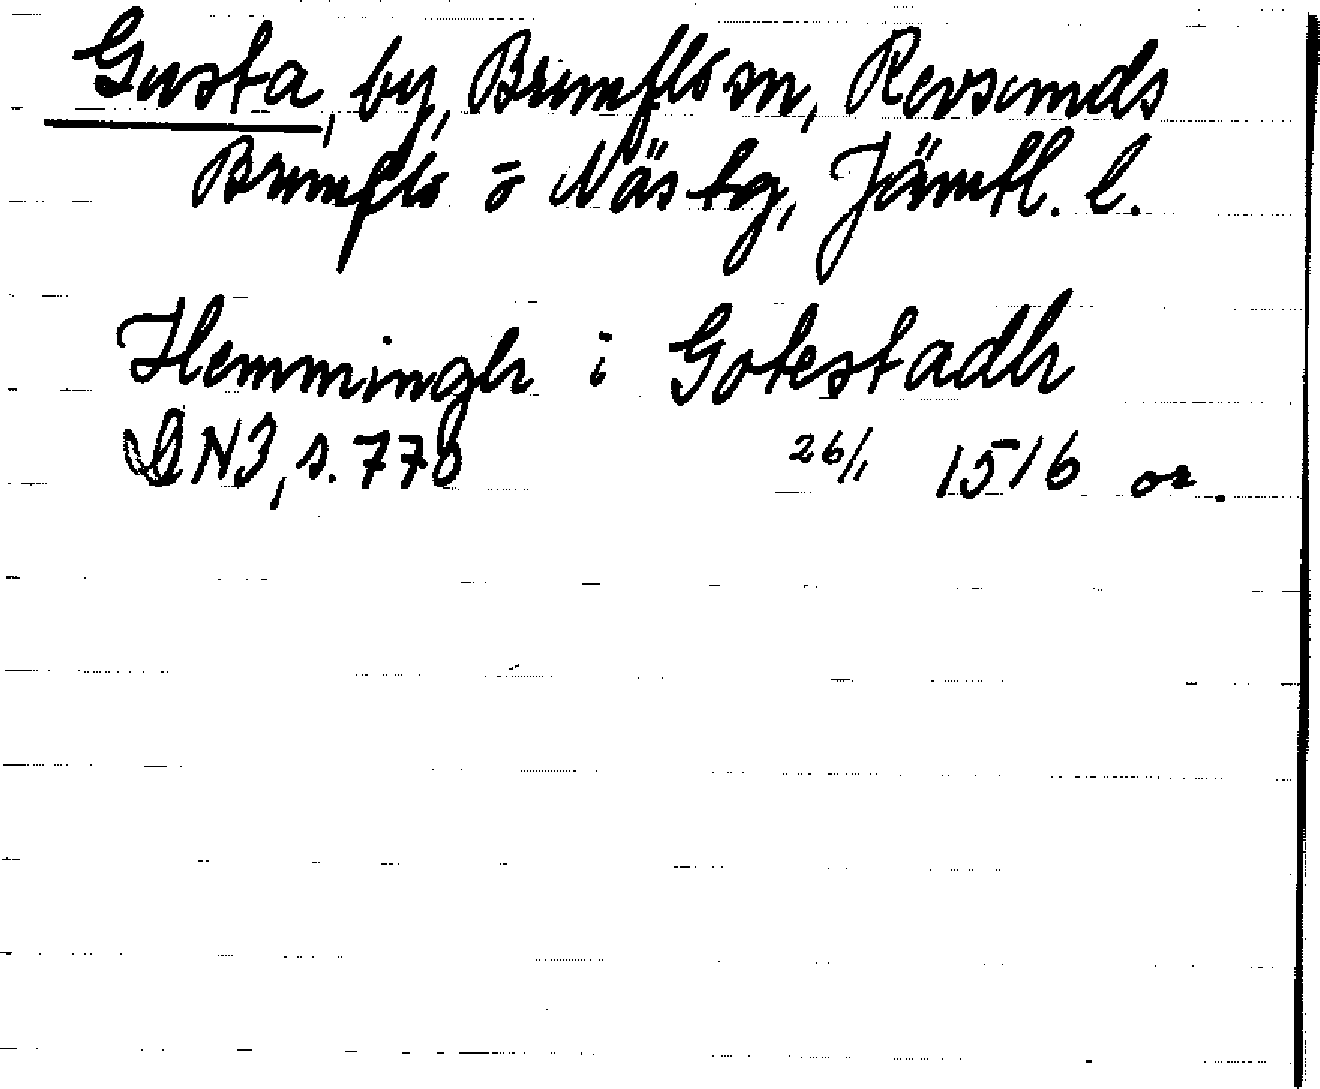 Gusta, by, Brunflo sn, Revsunds
Brunflo o Näs tg, Jämtl. l.
Hemmingh i Gotestadh
DN3, s. 778
26/1 1516 or.